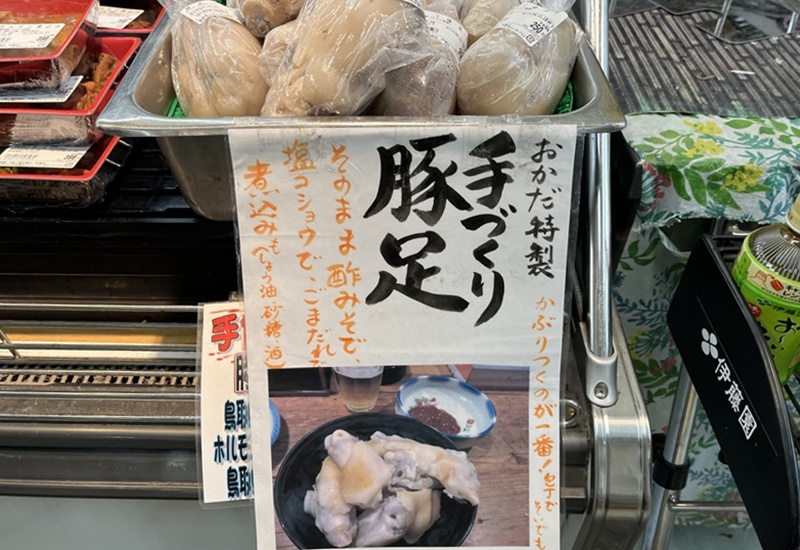 おかだ特製
手づくり
豚足
かぶりつくのが一番!包丁で
そいでも
そのまま酢みそで、
塩コショウで、ごまだれで
煮込みも
しょう油 砂糖 酒
手
鳥取
ホルモ
鳥取
伊藤園
250